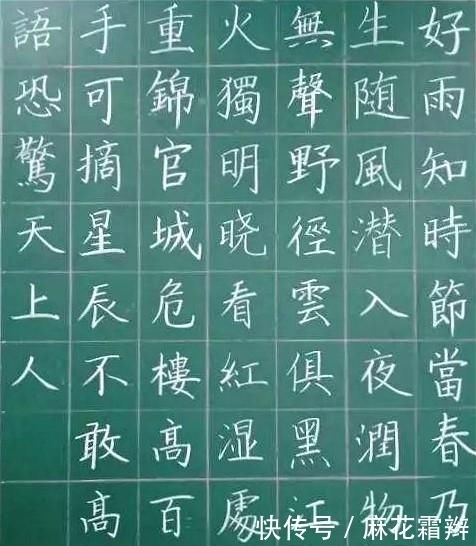 好雨知時節當春乃
生随風潜入夜潤物
無聲野徑雲俱黑江
火獨明晓看紅湿處
重錦官城危樓高百
手可摘星辰不敢高
語恐驚天上人
快传号 / 麻花霜辫